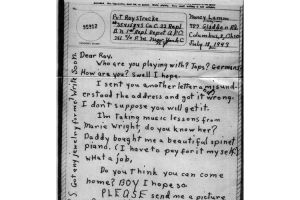 35912
Pvt Ray Strecke
Nancy Lamm
Columbus, Ohio
July 18, 1943
Dear Ray.
Who are you playing with? Japs? Germans?
How are you? Swell I hope.
I sent you another letter misund-
erstood the address and got it wrong.
I don't suppose you will get it.
I'm taking music lessons from
Marie Wright, do you know her?
Daddy bought me a beautiful spinet
piano. (I have to pay for it myself)
what a job,
Do you Think you can come
home? BOY I hope so.
PLEASE send me a picture
Got any jewelry for me? Write Soon.